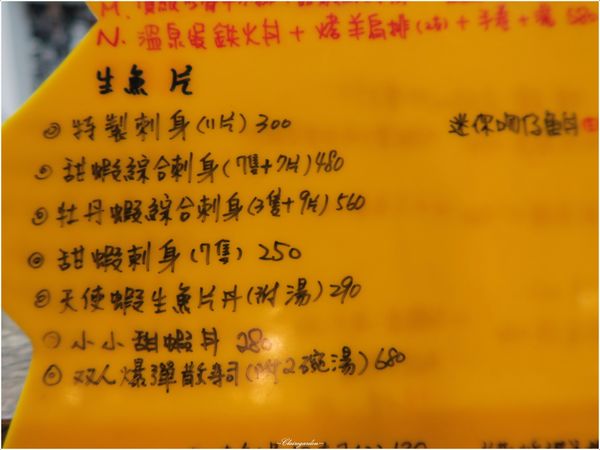 N. 溫泉蝦鉄火丼 + 烤羊肩排(2份) + 手卷 +
生魚片
◎ 特製刺身(11片) 300
迷你吻仔魚丼
◎ 甜蝦綜合刺身(7隻+7片) 480
◎ 牡丹蝦綜合刺身(3隻+9片) 560
◎ 甜蝦刺身(7隻) 250
◎ 天使蝦生魚片丼(附湯) 290
◎ 小小甜蝦丼 280
◎ 双人爆彈散壽司(附2碗湯) 680
~Clairegarden~